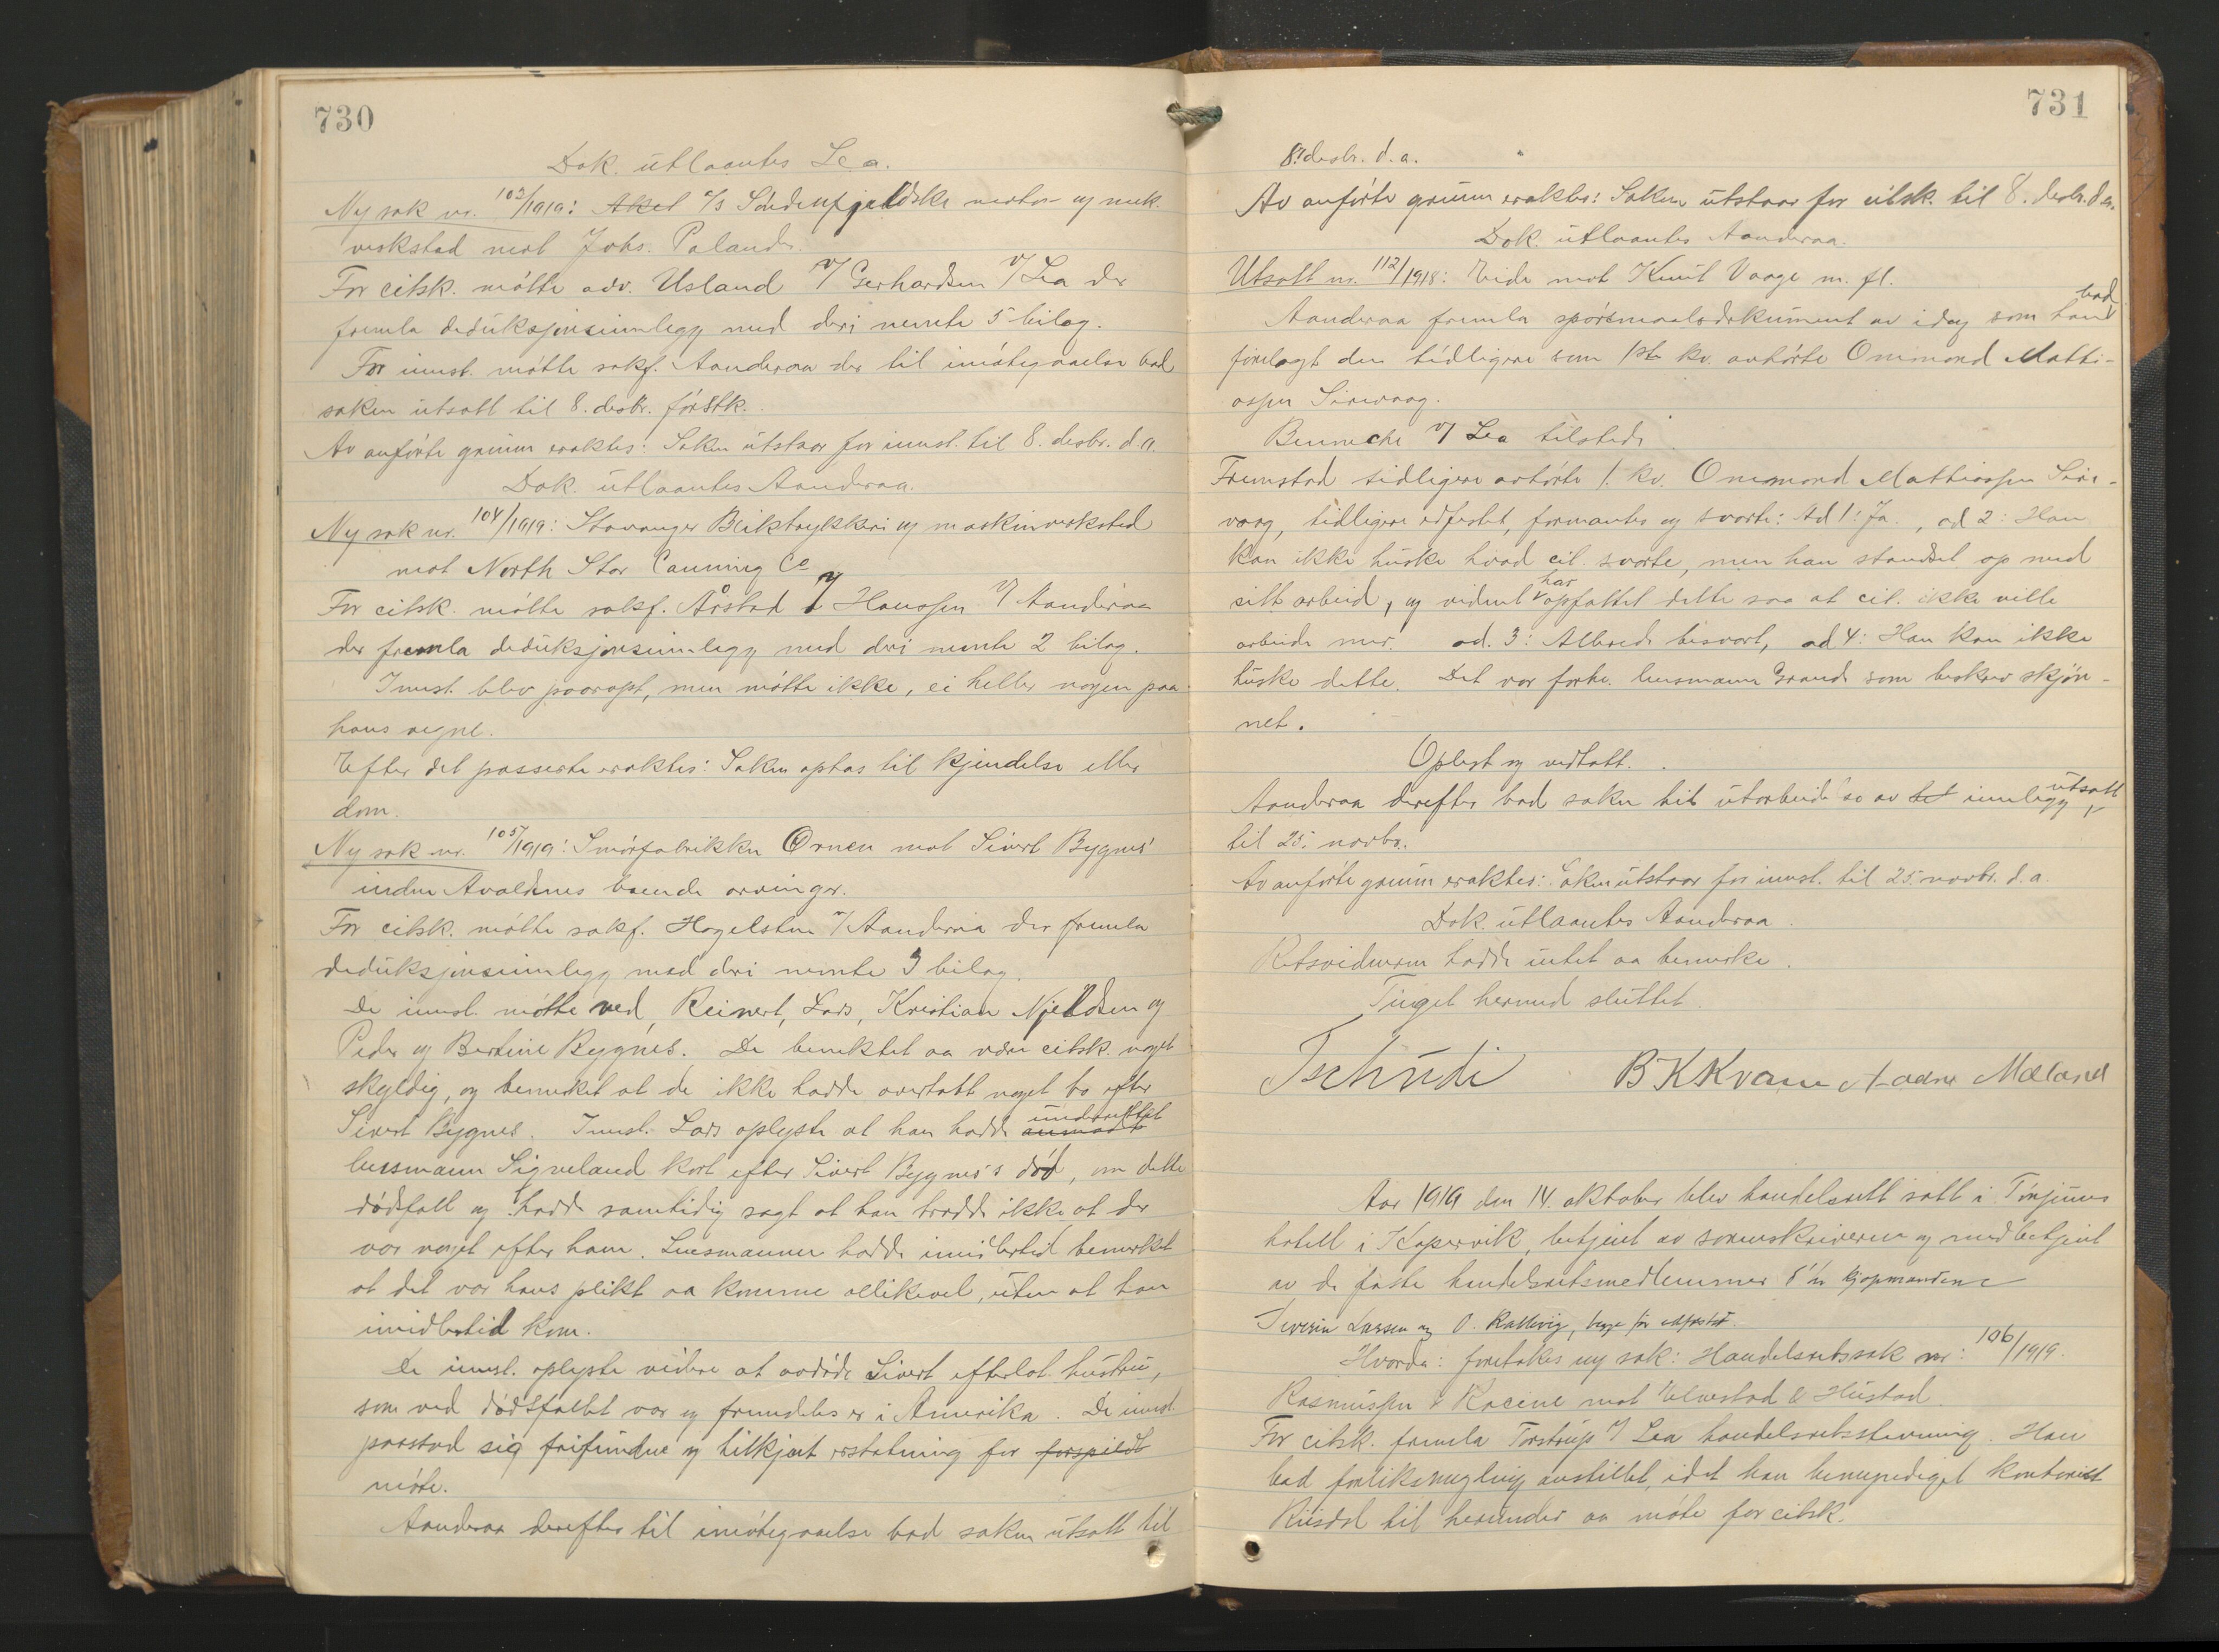 730
Dok. utlaantes Lea.
Ny sak nr. 103/1919: Aket A/S Söndenfjeldske motor- og mek.
verkstad mot Johs. Polander.
For citsk. mötte adv. Usland v/ Gerhardsen v/ Lea der
fremla deduksjonsinnlegg med deri nemnte 5 bilag.
For innst. mötte sakf. Aanderaa der til imötegaaelse bad
saken utsatt til 8. desbr. förstk.
Av anförte grunn eraktes: Saken utstaar for innst. til 8. desbr. d.a.
Dok. utlaantes Aanderaa.
Ny sak nr. 104/1919: Stavanger Bliktrykkeri og maskinverksted
mot North Star Canning Co
For citsk. mötte sakf. Årstad v/ Hanssen v/ Aanderaa
der fremla deduksjonsinnlegg med deri nemnte 2 bilag.
Innst. blev paaropt, men mötte ikke, ei heller nogen paa
hans vegne.
Efter det passerte eraktes: Saken optas til kjendelse eller
dom.
Ny sak nr. 105/1919: Smörfabrikken Örnen mot Sivert Bygnes'
inden Avaldsnes boende arvinger.
For citsk. mötte sakf. Hagelsteen v/ Aanderaa der fremla
deduksjonsinnlegg med deri nemnte 3 bilag.
De innst. mötte ved Reinert, Lars, Kristian Njeldsen og
Peder og Bertine Bygnes. De benektet aa være citsk. noget
skyldig, og bemerket at de ikke hadde overtatt noget bo efter
Sivert Bygnes. Innst. Lars oplyste at han hadde anmodet underrettet
lensmann Signeland kort efter Sivert Bygnes's död, om dette
dödsfall og hadde samtidig sagt at han trodde ikke at der
var noget efter ham. Lensmannen hadde imidlertid bemerket
at det var hans plikt aa komme allikevel, uten at han
imidlertid kom.
De innst. oplyste videre at avdöde Sivert efterlot hustru,
som ved dödsfallet var og fremdeles er i Amerika. De innst.
paastod sig frifundne og tilkjent erstatning for forspildt
möte.
Aanderaa derefter til imötegaaelse bad saken utsatt til
731
8. desbr. d.a.
Av anförte grunn eraktes: Saken utstaar for citsk. til 8. desbr. d.a.
Dok. utlaantes Aanderaa.
Utsatt nr. 112/1918: Eide mot Knut Vaage m. fl.
Aanderaa fremla spörsmaalsdokument av idag som han bad
forelagt den tidligere som 1ste kv. avhörte Ommond Matti-
assen Sirevaag.
Benneche v/ Lea tilstede.
Fremstod tidligere avhörte 1. kv. Ommond Mathiassen Sire-
vaag, tidligere edfestet, formantes og svarte: Ad 1: Ja., ad 2: Han
kan ikke huske hvad cit. svarte, men han standset op med
sitt arbeid, og vidnet har opfattet dette saa at cit. ikke ville
arbeide mer. ad. 3: Allerede besvart, ad 4: Han kan ikke
huske dette. Det var forhv. lensmann Grande som beskrev skjön-
net.
Oplest og vedtatt.
Aanderaa derefter bad saken til utarbeidelse av et innlegg, utsatt
til 25. novbr.
Av anförte grunn eraktes: Saken utstaar for innst. til 25. novbr. d.a.
Dok. utlaantes Aanderaa.
Retsvidnerne hadde intet aa bemerke.
Tinget hermed sluttet.
Tschudi B K Kvame Aadne Mæland
Aar 1919 den 14. oktober blev handelsrett satt i Tönjums
hotell i Kopervik, betjent av sorenskriveren og medbetjent
av de faste handelsretsmedlemmer kjöpmændene
Severin Larsen og O. Rallevig, begge för edfæstet.
Hvorda: foretokes ny sak: Handelsretssak nr: 106/1919.
Rasmussen & Racine mot Elvestad & Hustad.
For citsk. fremla Torstrup v/ Lea handelsretsstevning. Han
bad forliksmegling anstillet, idet han bemyndiget kontorist
Riisdal til herunder aa möte for citsk.